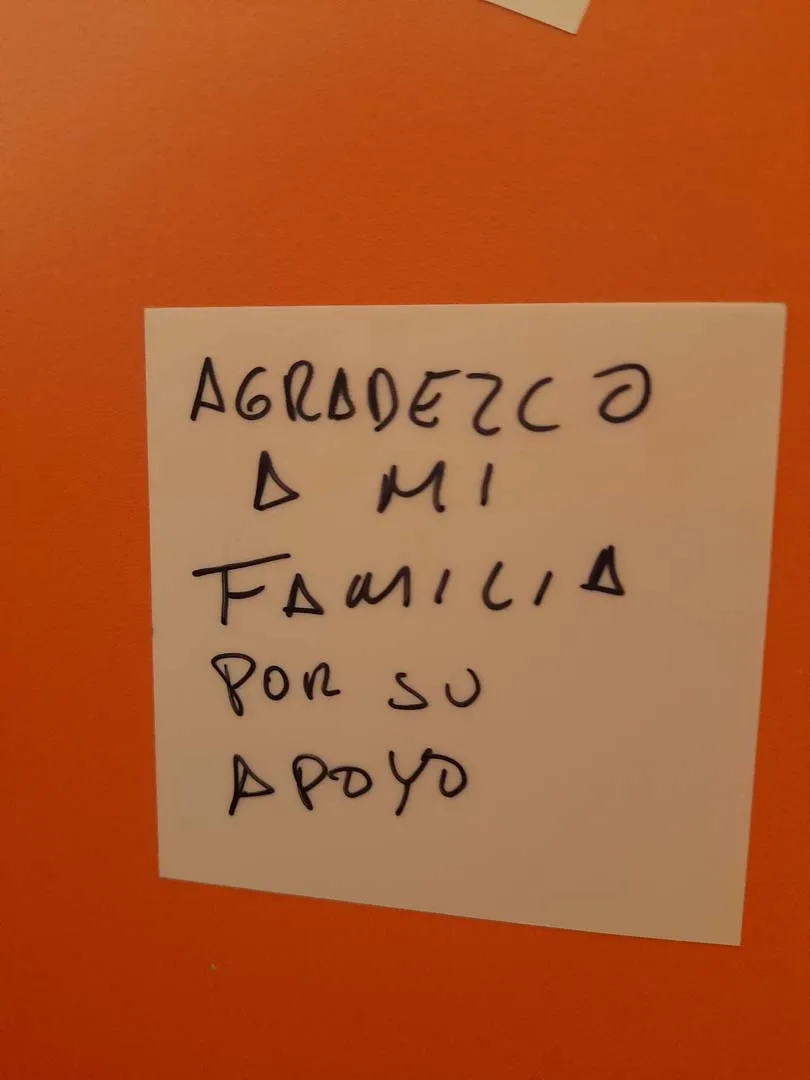 AGRADEZCO
A MI
FAMILIA
POR SU
APOYO